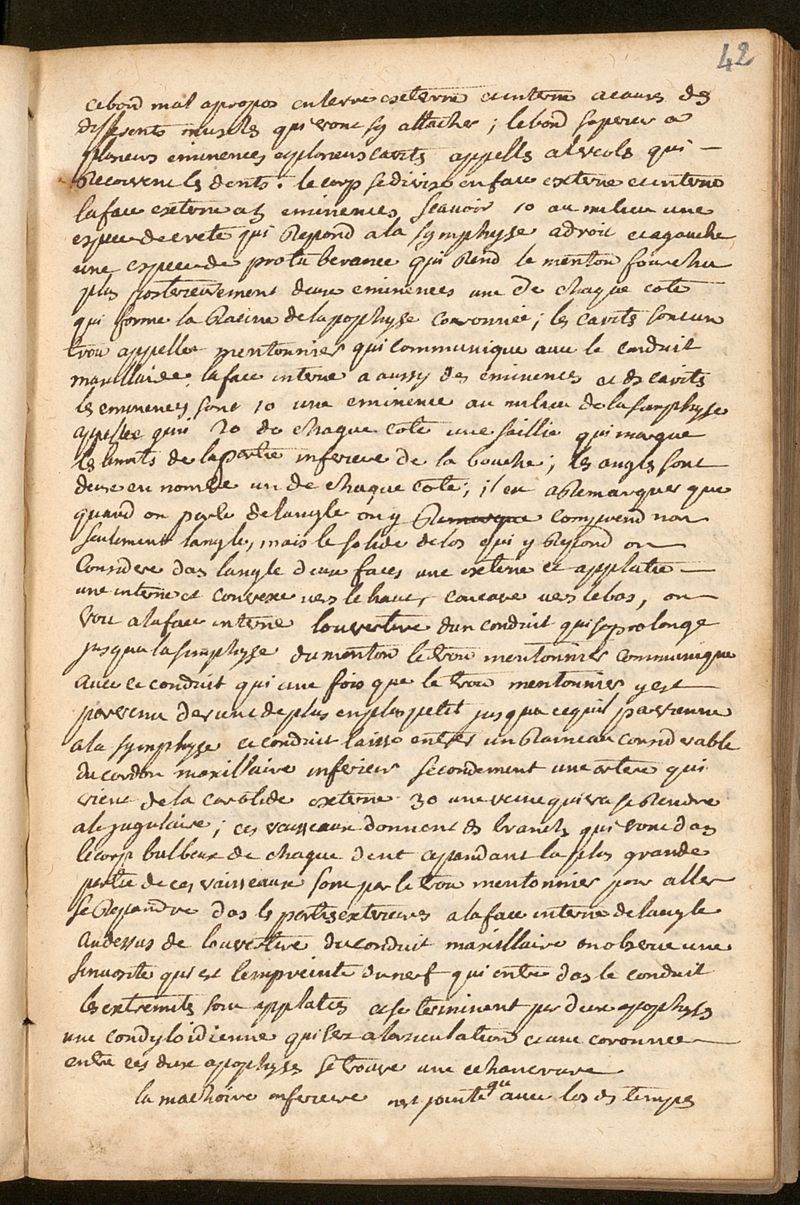 42
ce bord mal apropos en levre externe et interne a cause des
differents muscles qui vont sy attacher; le bord superieur a
plusieurs eminences et plusieurs cavites appellés alveoles qui
Recoivent les dents. le corp se divise en face externe et interne
la face externe a des eminences scavoir 10 au milieu une
espece de crete qui Repond a la symphyse a droit et a gauche
une espece de protuberance qui Rend le menton fourchu
plus posterieurement deux eminences une de chaque coté
qui forme la Racine de lapophyse coronnée; les cavités sont un
trou appeller mentonnier qui communique avec le conduit
maxillaire, la face interne a aussy des eminences et des cavités
les eminences sont 10 une eminence au milieu de la simphyse
appellée 20 de chaque coté une saillie qui marque
les limits de la partie inferieure de la bouche; les angles sont
deux en nombre un de chaque coté; il est a Remarquer que
quand on parle de langle on y Remarque comprend non
seulement langle, mais le solide de los qui y Repond on
Considere dans langle deux faces une externe et applatie
une interne et convexe vers le haut, concave vers le bas, on
voit a la face interne louverture dun conduit qui se prolonge
jusqua la simphyse du menton le trou mentonnier communique
avec ce conduit qui une fois que le trou mentonnier y est
parvenu devient de plus en plus petit jusqua ce quil parvienne
a la symphyse ce conduit laisse entrer un Rameau considerable
du cordon maxillaire inferieur secondement une artere qui
vient de la carotide externe 30 une veine qui va se Rendre
a le jugulaire; ces vaisseaux donnent des branches qui vont dans
le corp bulbeux de chaque dent cependant la plus grande
partie de ces vaisseaux sont par le trou mentonnier pour aller
se Repandre dans les parties exterieures a la face interne de langle
au dessus de louverture du conduit maxillaire on observe une
sinuosité qui est lempreinte du nerf qui entre dans le conduit
les extremités sont applaties et se terminent par deux apophyses
une condyloidienne qui sert a larticulation et une coronnée
entre ces deux apophyses se trouve une echancrure
la machoire inferieure nest jointe qu avec los des temps